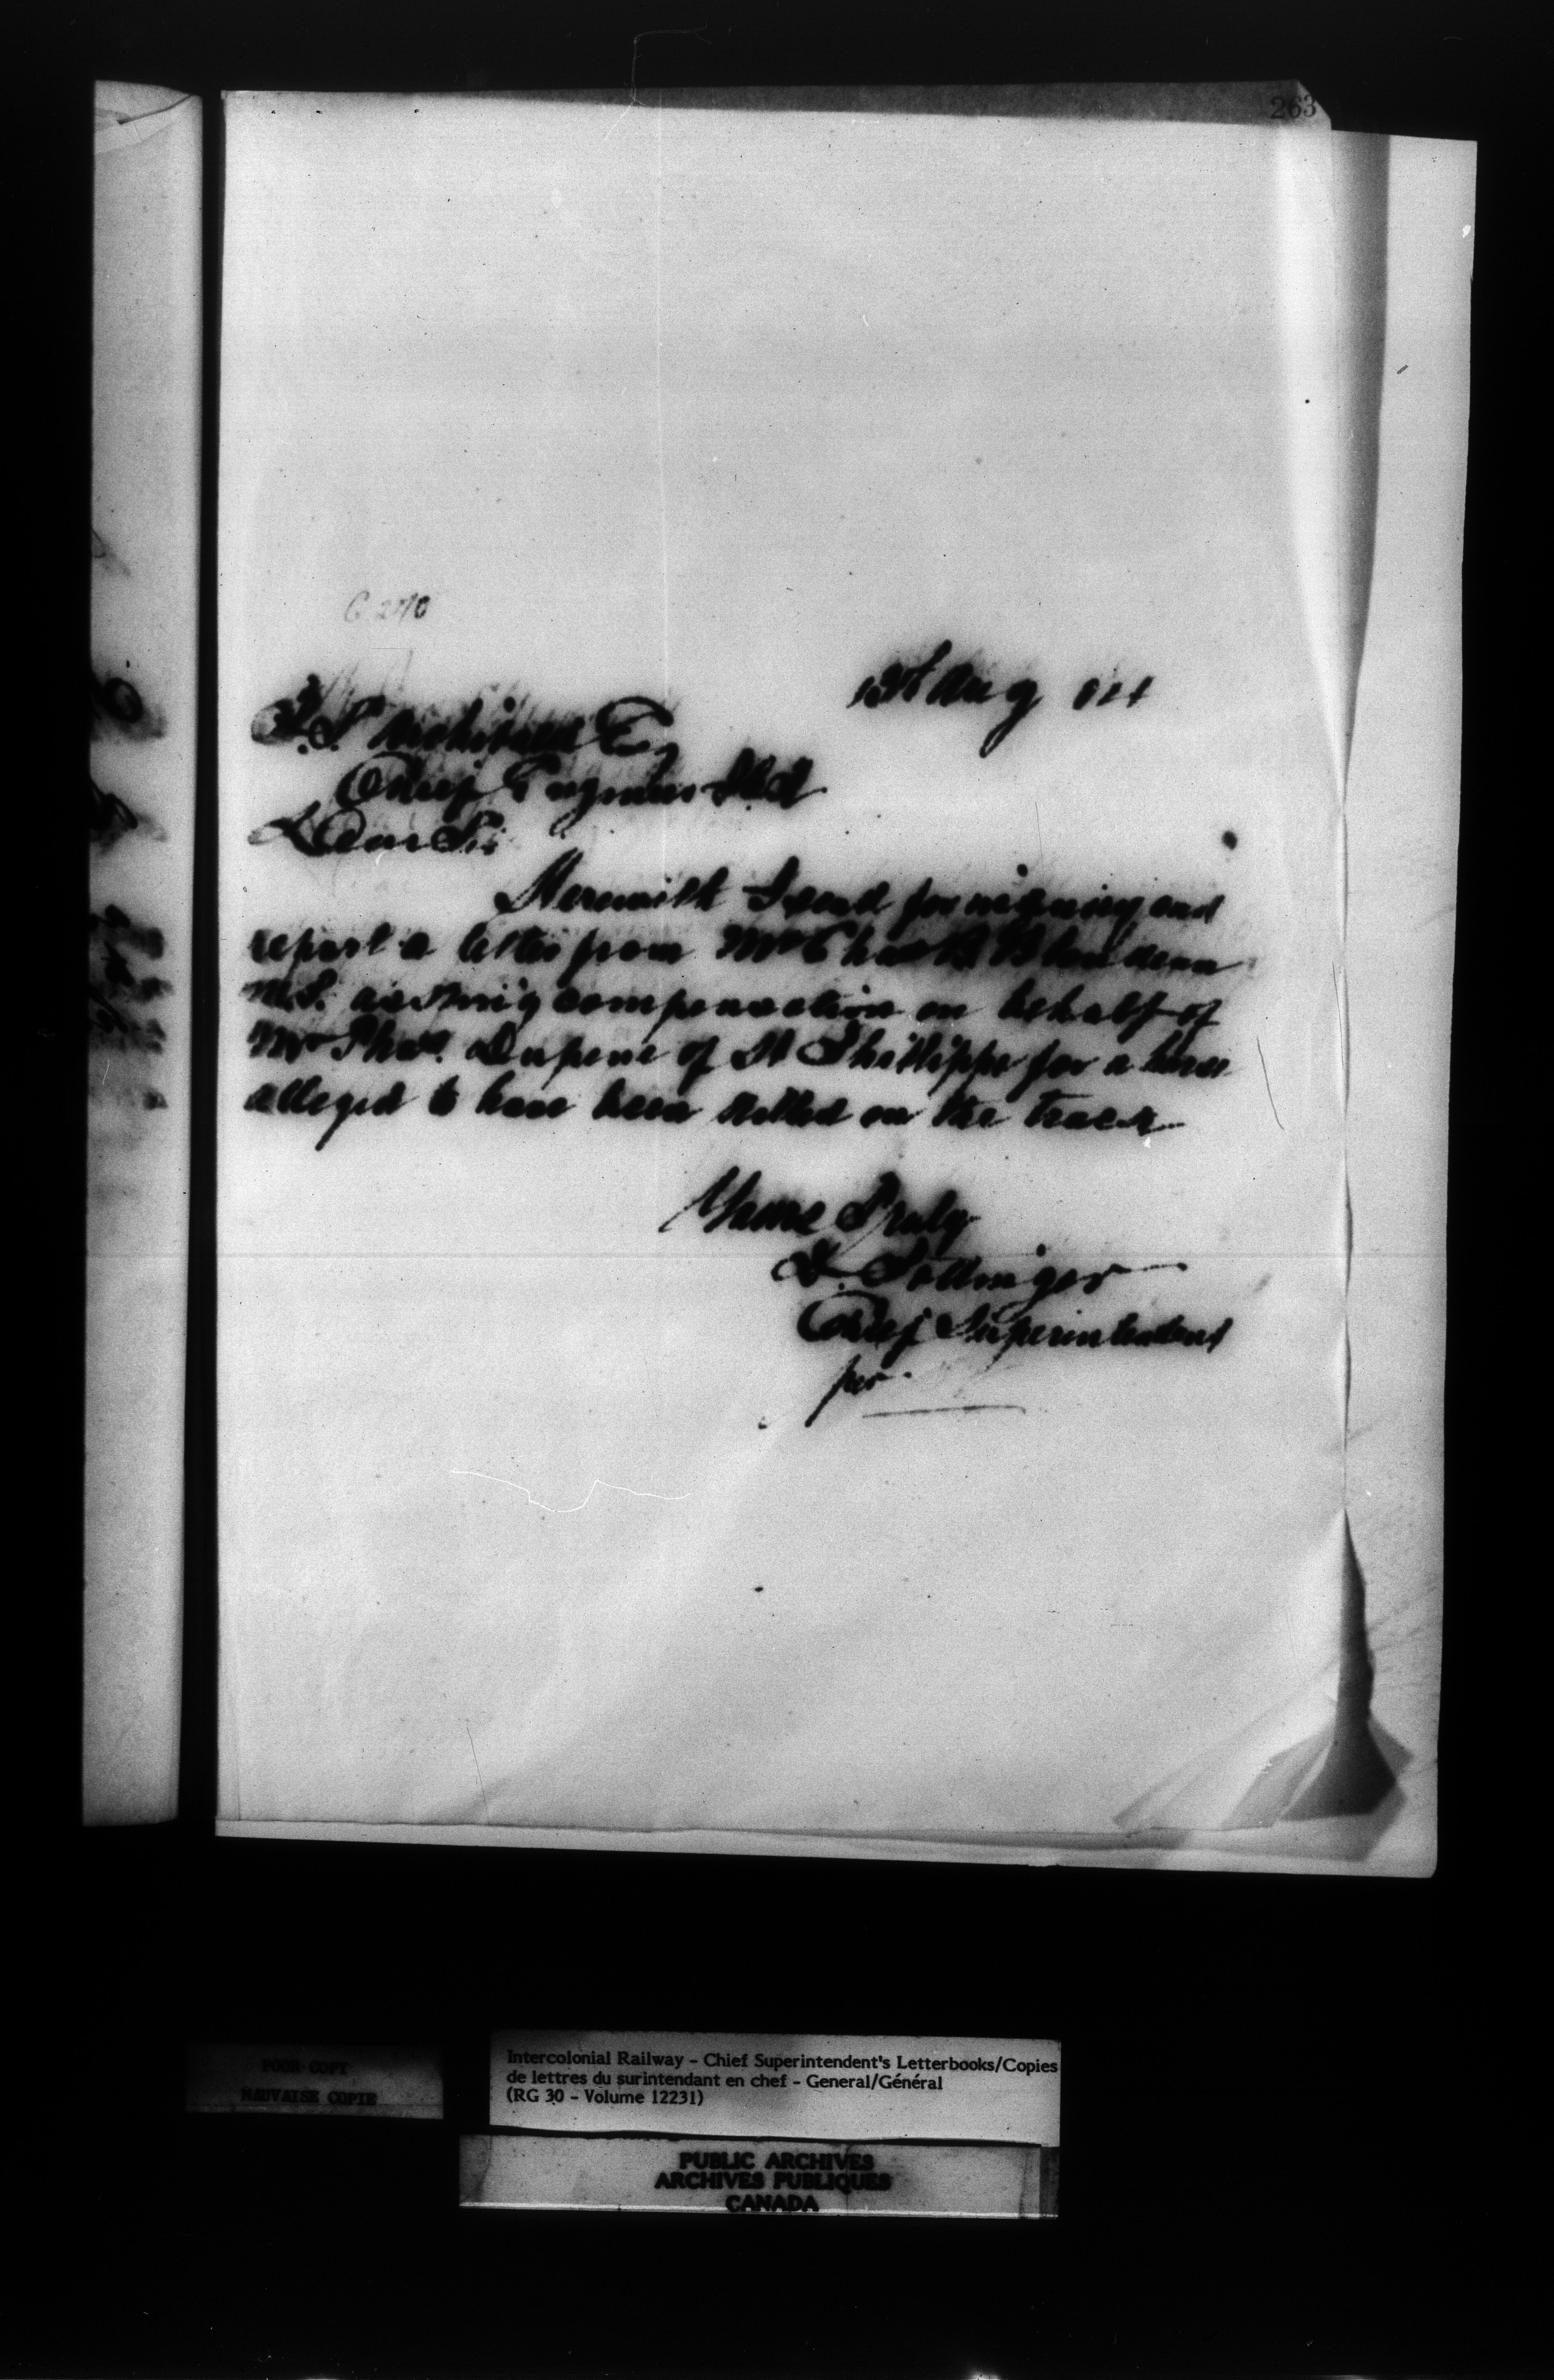 263
P.S. Archibald Esq
Chief Engineer I.C.R
Dear Sir
Herewith I send for inquiry and
report a letter from Mr Chas B
M.P. asking compensation on behalf of
Mr Thos. Dupere of St Phillippe for a horse
alleged to have been killed on the track
Yours Truly
D. Pottinger
Chief Superintendent
per
POOR COPY
MAUVAISE COPIE
Intercolonial Railway – Chief Superintendent's Letterbooks/Copies
de lettres du surintendant en chef – General/Général
(RG 30 – Volume 12231)
PUBLIC ARCHIVES
ARCHIVES PUBLIQUES
CANADA